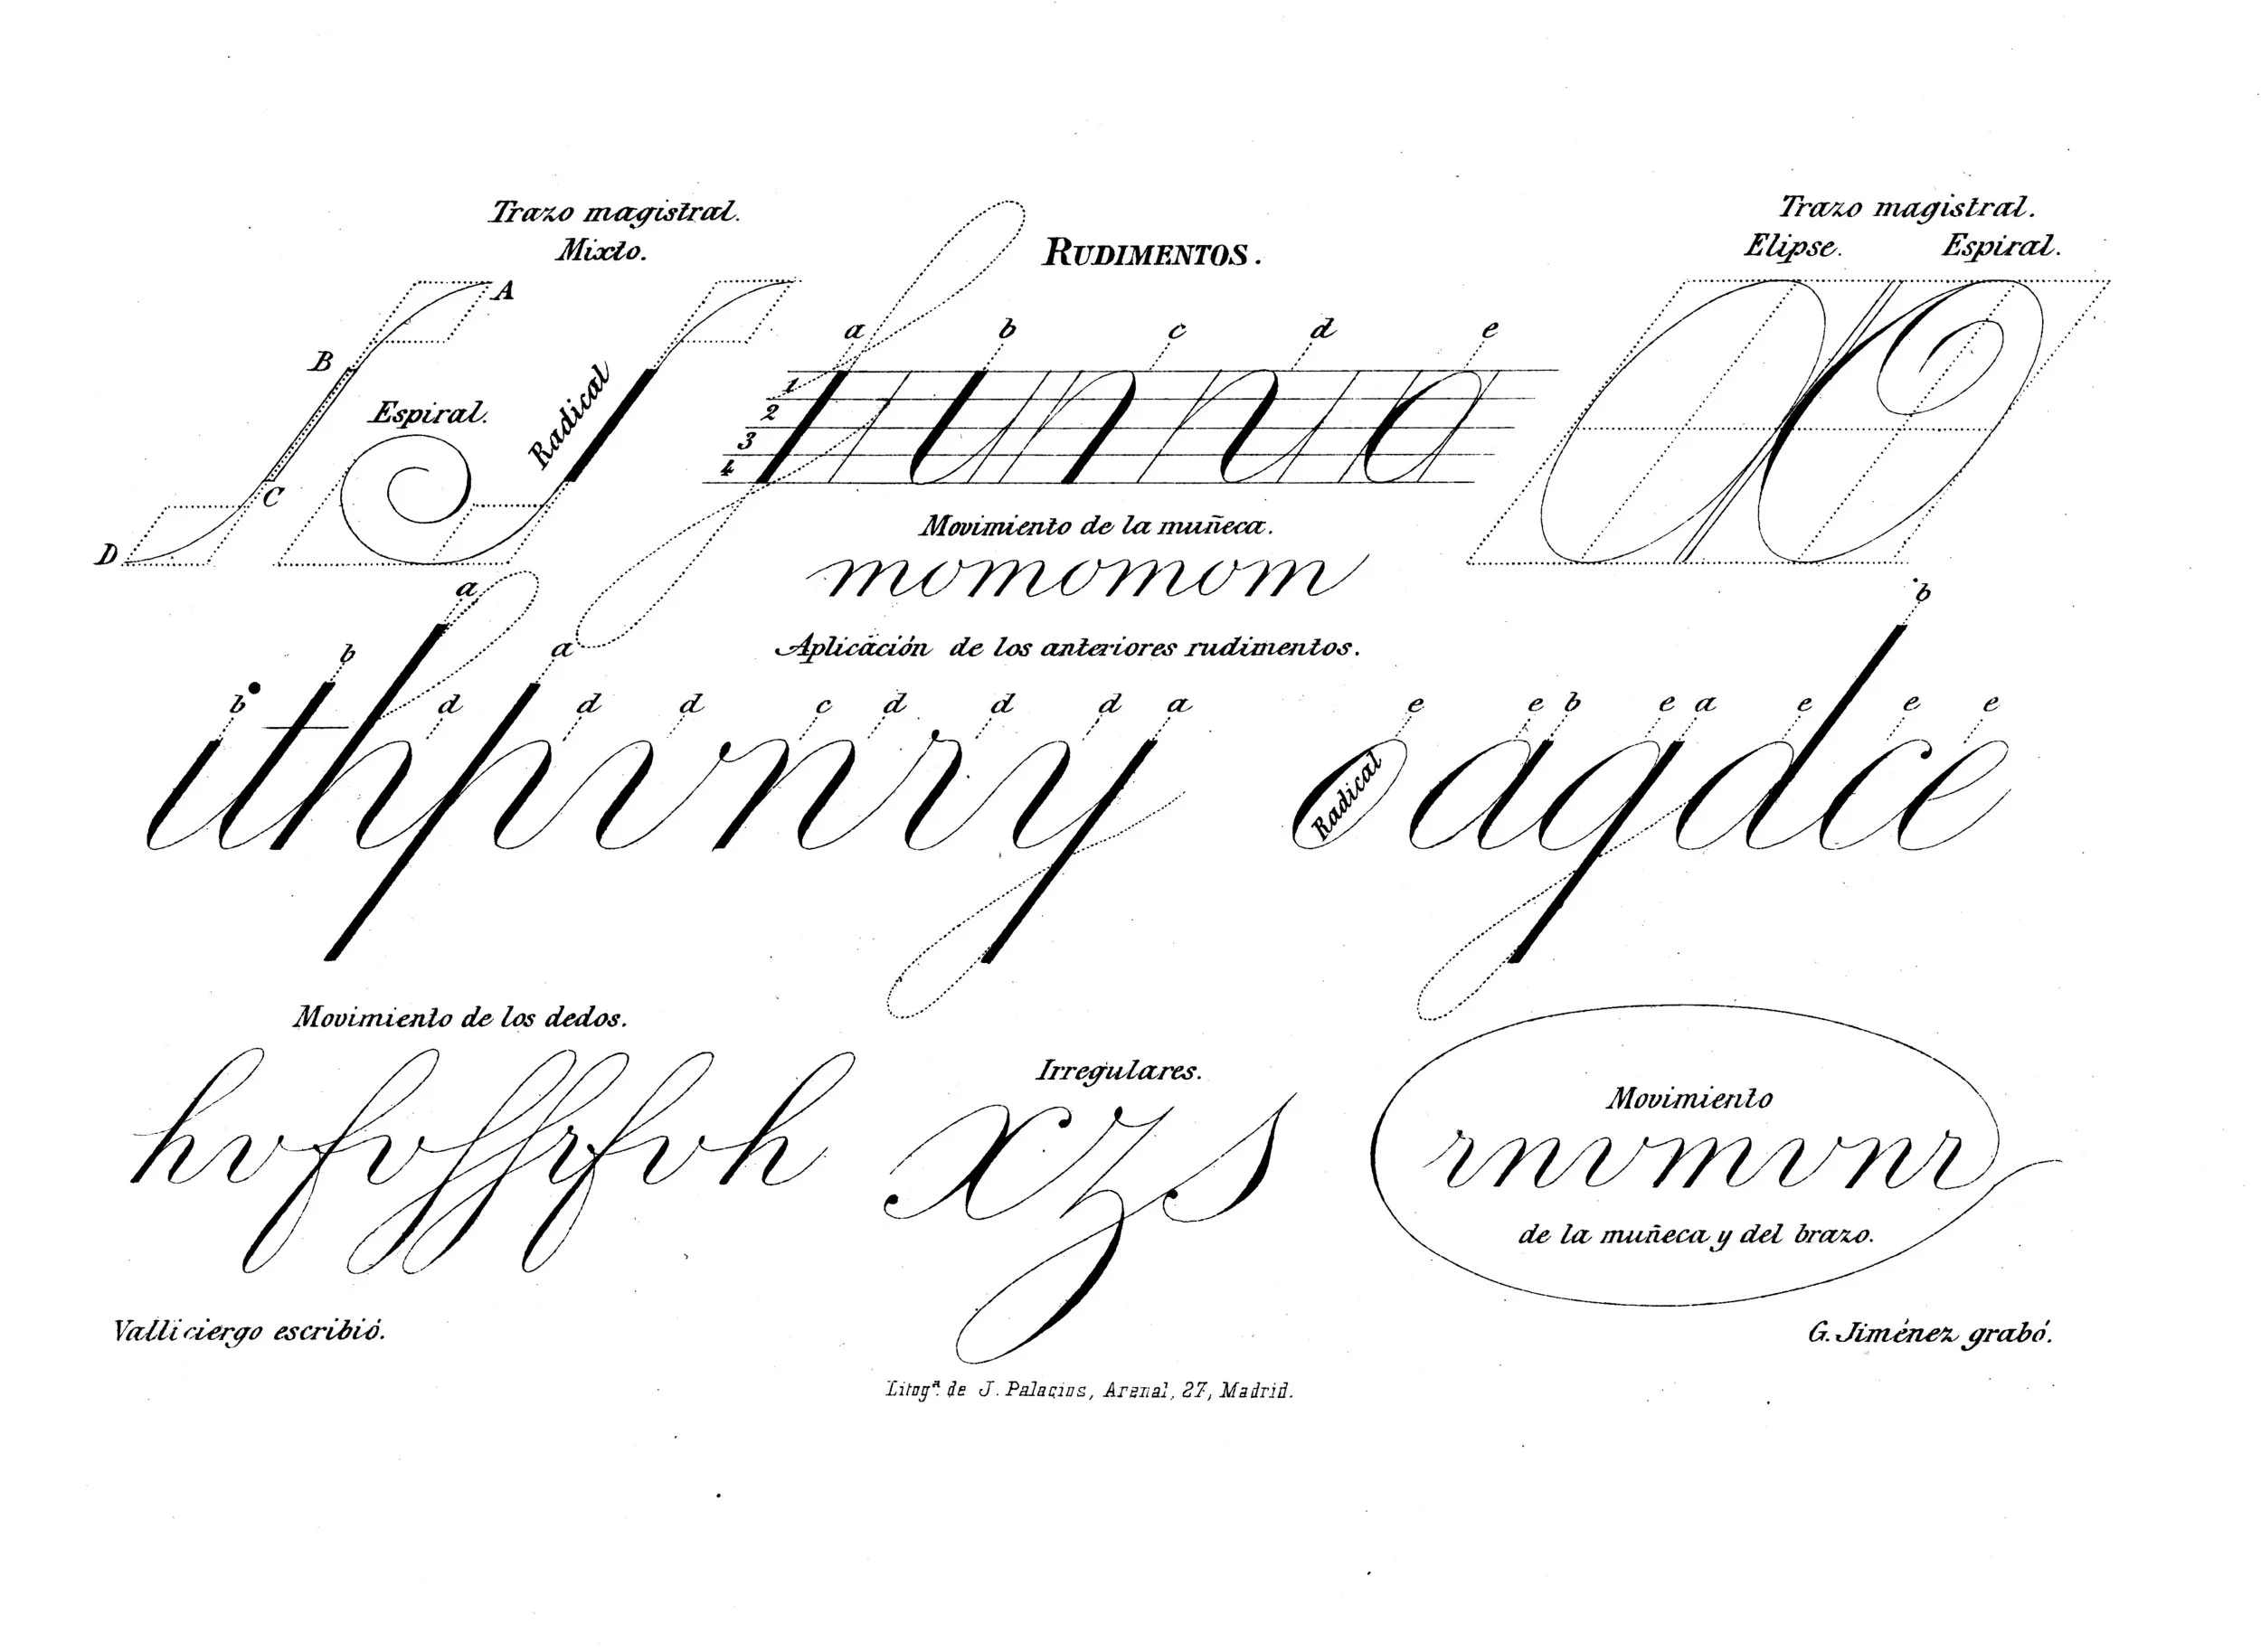 Trazo magistral.
Mixto.
RUDIMENTOS.
Trazo magistral.
Elipse. Espiral.
A
B
C
D
Espiral.
Radical
a b c d e
1
2
3
4
Movimiento de la muñeca.
momomom
Aplicación de los anteriores rudimentos.
b b a d a d d c d d d a e e b e a e b e e
ithpvnry oagdce
Radical
Movimiento de los dedos.
hvfvffrfvh
Irregulares.
xzs
Movimiento
rnvmvnr
de la muñeca y del brazo.
Valliciergo escribió.
G. Jiménez grabó.
Litogª. de J. Palacios, Arenal, 27, Madrid.